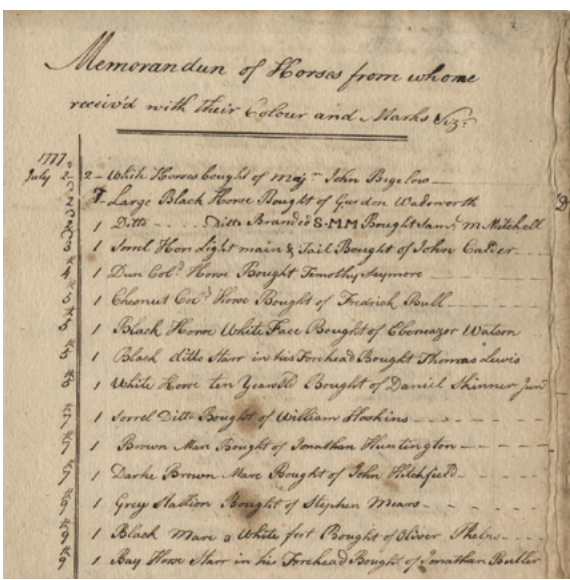 Memorandun of Horses from whome
receiv'd with their Colour and Marks Viz.
1777
July 2 2 - White Horses bought of Maj.r John Bigelow
2 Large Black Horse Bought of Wadsworth
2 1 Ditto Ditto Branded S.M.M Bought Sam.l M Mitchell
3 1 Sorrel Horse Light main & Tail Bought of John Calder
4 1 Dun Col.d Horse Bought Timothy Seymore
5 1 Chesnut Col.d Horse Bought of Fredrick Bull
5 1 Black Horse White Face Bought of Ebeneazer Watson
5 1 Black ditto Starr in his Forehead Bought Thomas Lewis
5 1 White Horse ten Years Old Bought of Daniel Skinner Jun.r
7 1 Sorrel Ditto Bought of William Hoskins
7 1 Brown Mare Bought of Jonathan Huntington
7 1 Darke Brown Mare Bought of John
9 1 Grey Stallion Bought of Stephen Mears
9 1 Black Mare 3 White feet Bought of Oliver Phelps
9 1 Bay Horse Starr in his Forehead Bought of Jonathan Butler